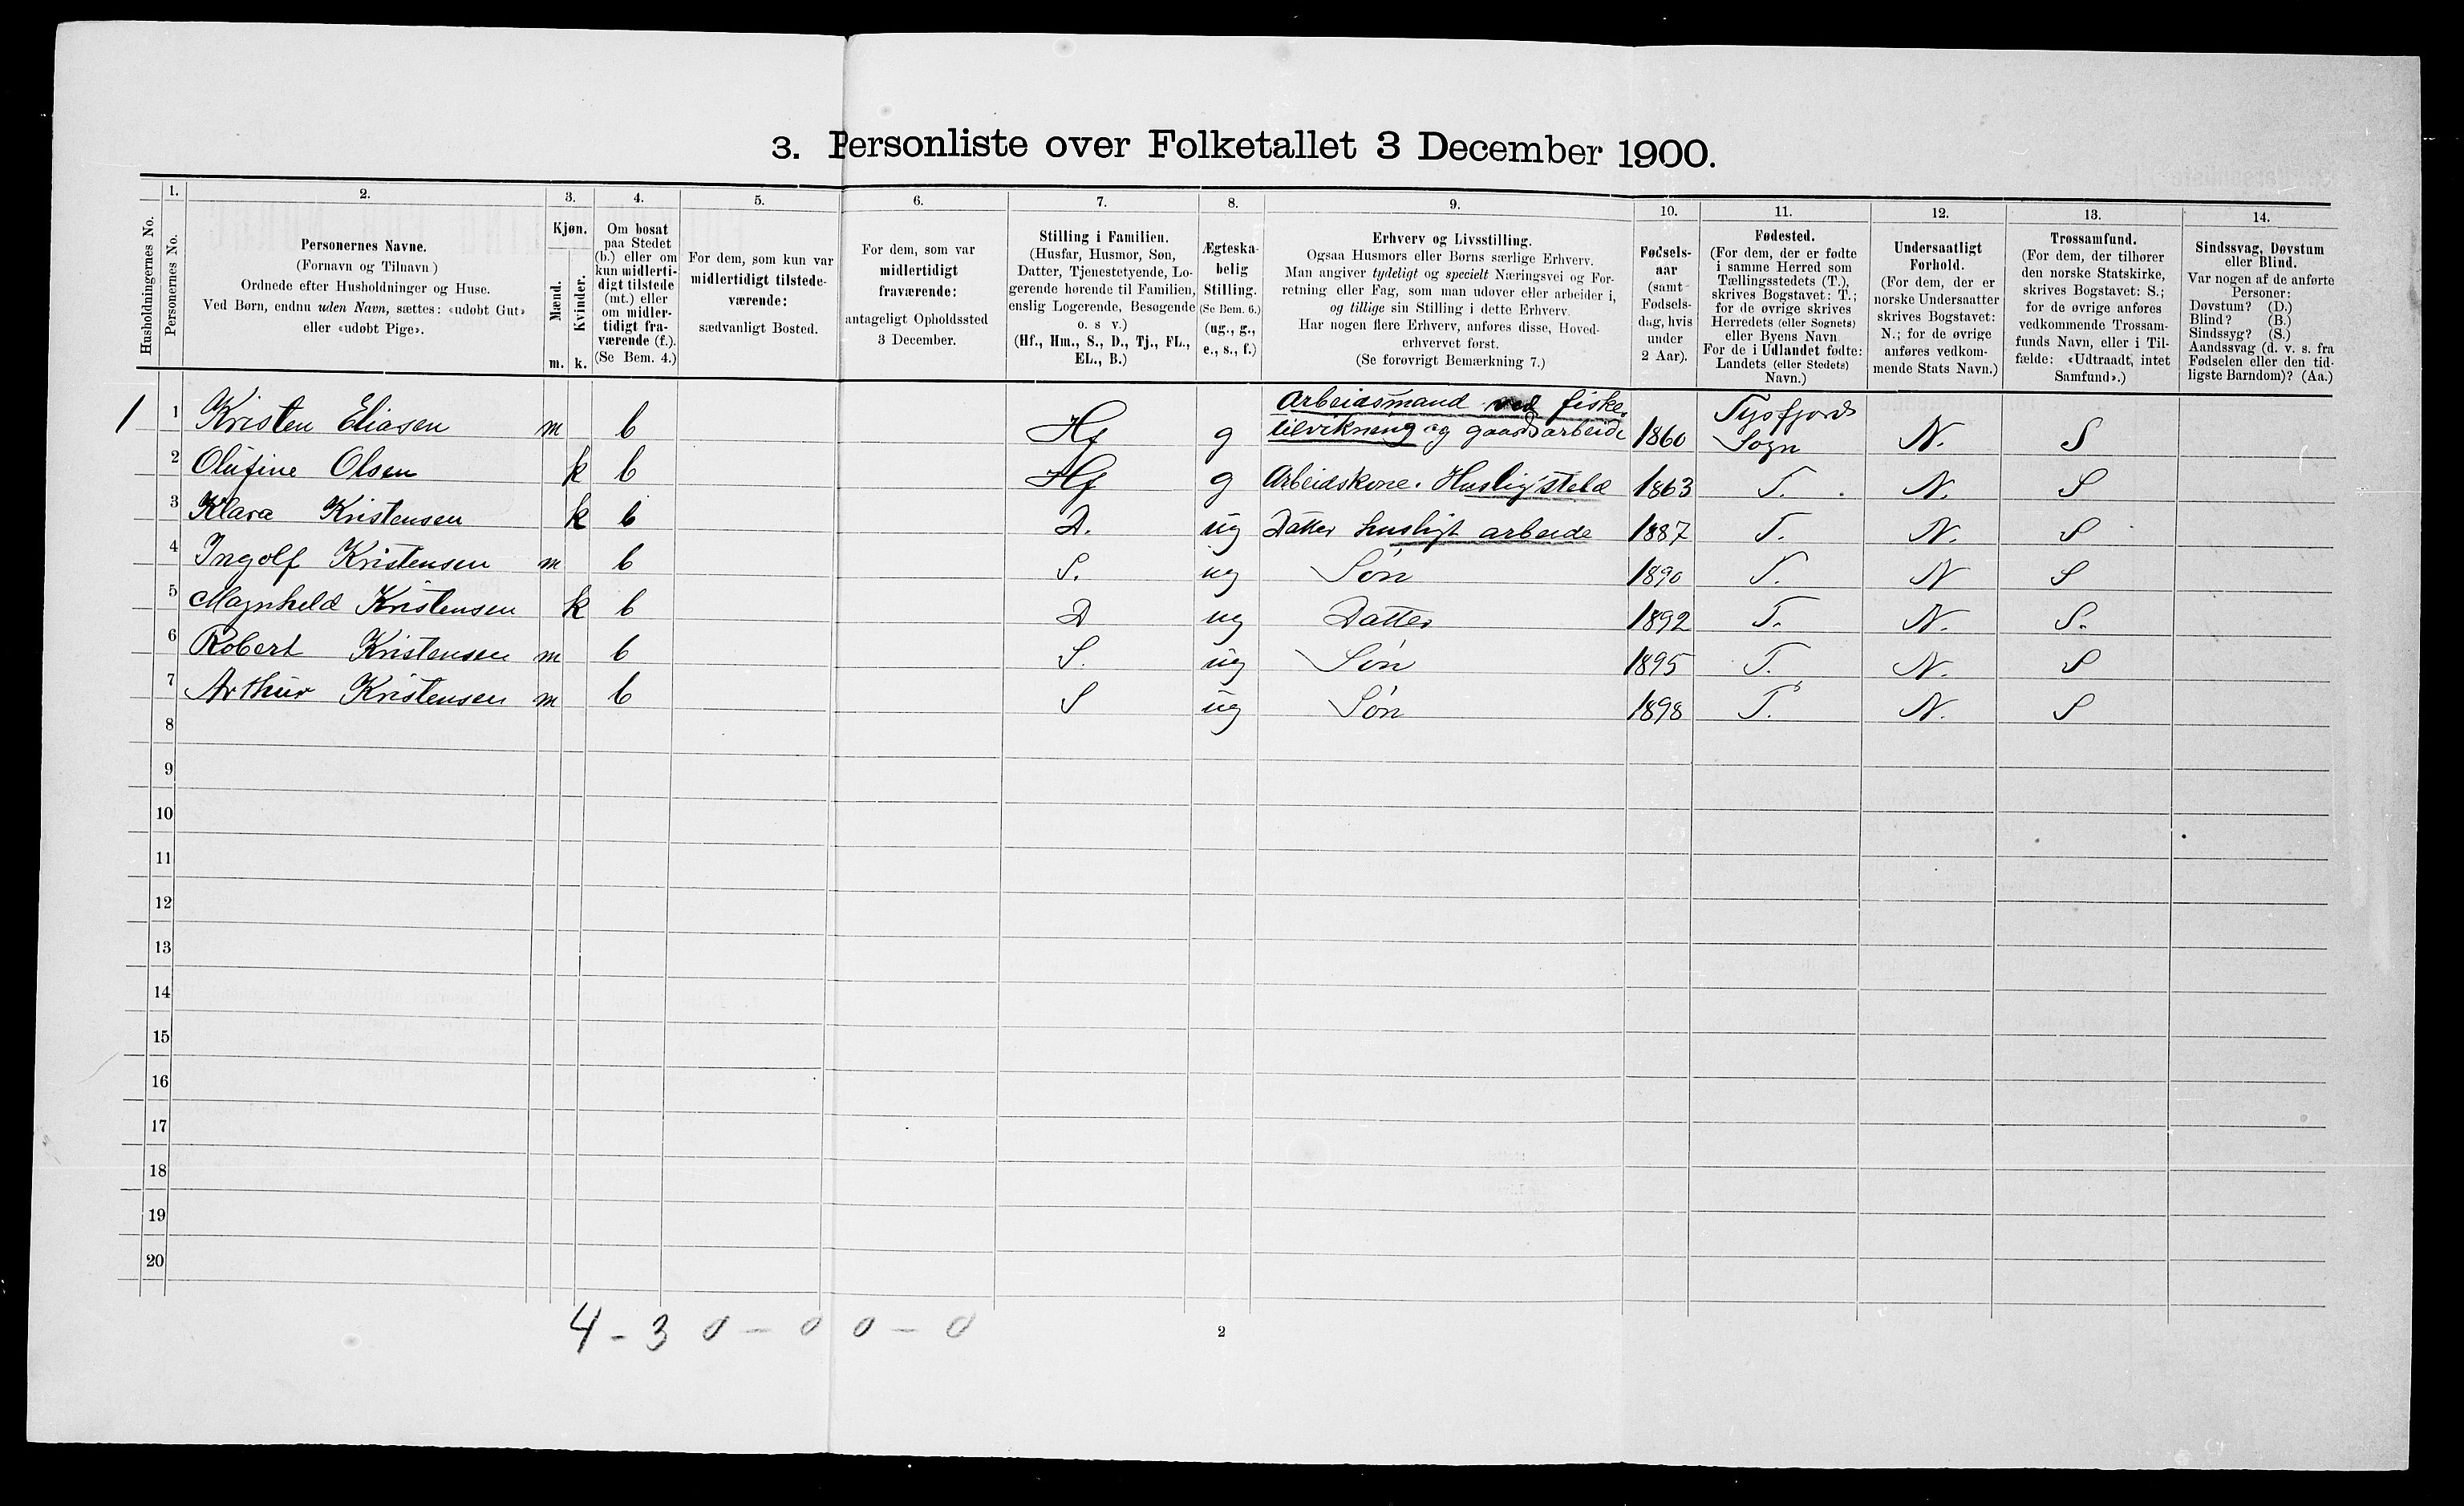 3. Personliste over Folketallet 3 December 1900.
Husholdningernes No.
1.
Personernes No.
2.
Personernes Navne.
(Fornavn og Tilnavn)
Ordnede efter Husholdninger og Huse.
Ved Børn, endnu uden Navn, sættes: «udøbt Gut»
eller «udøbt Pige».
3.
Kjøn.
Mænd.
Kvinder.
m. k.
4.
Om bosat
paa Stedet
(b.) eller om
kun midlerti-
digt tilstede
(mt.) eller
om midler-
tidigt fra-
værende (f.).
(Se Bem. 4.)
5.
For dem, som kun var
midlertidigt tilstede-
værende:
sædvanligt Bosted.
6.
For dem, som var
midlertidigt
fraværende:
antageligt Opholdssted
3 December.
7.
Stilling i Familien.
(Husfar, Husmor, Søn,
Datter, Tjenestetyende, Lo-
gerende hørende til Familien,
enslig Logerende, Besøgende
o. s v.)
(Hf., Hm., S., D., Tj., FL.,
EL., B.)
8.
Ægteska-
belig
Stilling.
(Se Bem. 6.)
(ug., g.,
e., s., f.)
9.
Erhverv og Livsstilling.
Ogsaa Husmors eller Børns særlige Erhverv.
Man angiver tydeligt og specielt Næringsvei og For-
retning eller Fag, som man udøver eller arbeider i,
og tillige sin Stilling i dette Erhverv.
Har nogen flere Erhverv, anføres disse, Hoved-
erhvervet først.
(Se forøvrigt Bemærkning 7.)
10.
Fødsels-
aar
(samt
Fødsels-
dag, hvis
under
2 Aar).
11.
Fødested.
(For dem, der er fødte
i samme Herred som
Tællingsstedets (T.),
skrives Bogstavet: T.;
for de øvrige skrives
Herredets (eller Sognets)
eller Byens Navn
For de i Udlandet fødte:
Landets (eller Stedets)
Navn.)
12.
Undersaatligt
Forhold.
(For dem, der er
norske Undersaatter
skrives Bogstavet:
N.; for de øvrige
anføres vedkom-
mende Stats Navn.)
13.
Trossamfund.
(For dem, der tilhører
den norske Statskirke,
skrives Bogstavet: S.;
for de øvrige anføres
vedkommende Trossam-
funds Navn, eller i Til-
fælde: «Udtraadt, intet
Samfund».)
14.
Sindssvag, Døvstum
eller Blind.
Var nogen af de anførte
Personer:
Døvstum? (D.)
Blind? (B.)
Sindssyg? (S.)
Aandssvag (d. v. s. fra
Fødselen eller den tid-
ligste Barndom)? (Aa.)
Arbeidsmand ved fiske- Tysfjords
1 1 Kristen Eliasen m b Hf g tilvirkning og gaardsarbeide 1860 Sogn N. S
2 Olufine Olsen k b Hf g Arbeidskone. Husligt steld 1863 T. N. S
3 Klara Kristensen k b D. ug Datter husligt arbeide 1887 T. N. S
4 Ingolf Kristensen m b S. ug Søn 1890 T. N S
5 Magnheld Kristensen k b D ug Datter 1892 T. N. S.
6 Robert Kristensen m b S. ug Søn 1895 T. N. S
7 Arthur Kristensen m b S ug Søn 1898 T. N. S
8
9
10
11
12
13
14
15
16
17
18
19
20
4 - 3 0 - 0 0 - 0
2